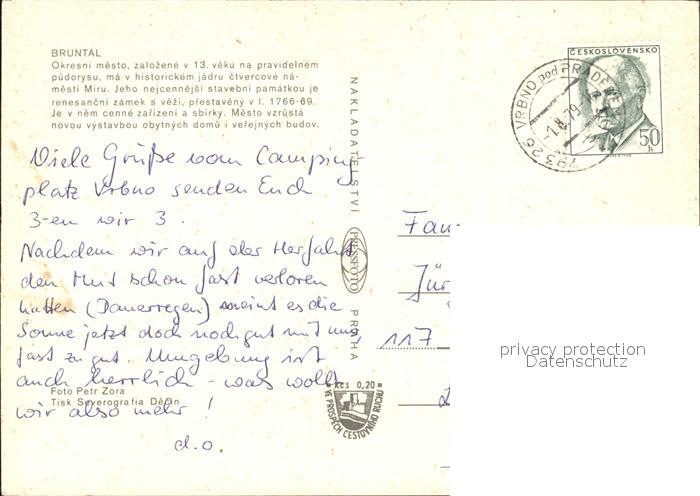 BRUNTÁL
Okresní město, založené v 13. věku na pravidelném
půdorysu, má v historickém jádru čtvercové ná-
městí Míru. Jeho nejcennější stavební památkou je
renesanční zámek s věží, přestavěný v l. 1766-69.
Je v něm cenné zařízení a sbírky. Město vzrůstá
novou výstavbou obytných domů i veřejných budov.
Viele Grüße vom Camping
platz Vrbno senden Euch
3-en wir 3.
Nachdem wir auf der Herfahrt
den Mut schon fast verloren
hatten (Dauerregen) meint es die
Sonne jetzt doch noch gut mit uns
fast zu gut. Umgebung ist
auch herrlich - was wollt
wir also mehr!
d.o.
Foto Petr Zora
Tisk Severografia Děčín
NAKLADATELSTVÍ
PRESSFOTO
PRAHA
Kčs 0,20
VE PROSPĚCH CESTOVNÍHO RUCHU
ČESKOSLOVENSKO
50 h
793 26 VRBNO pod PRADĚDEM
-1.8.79
Fam
Jür
117
privacy protection
Datenschutz